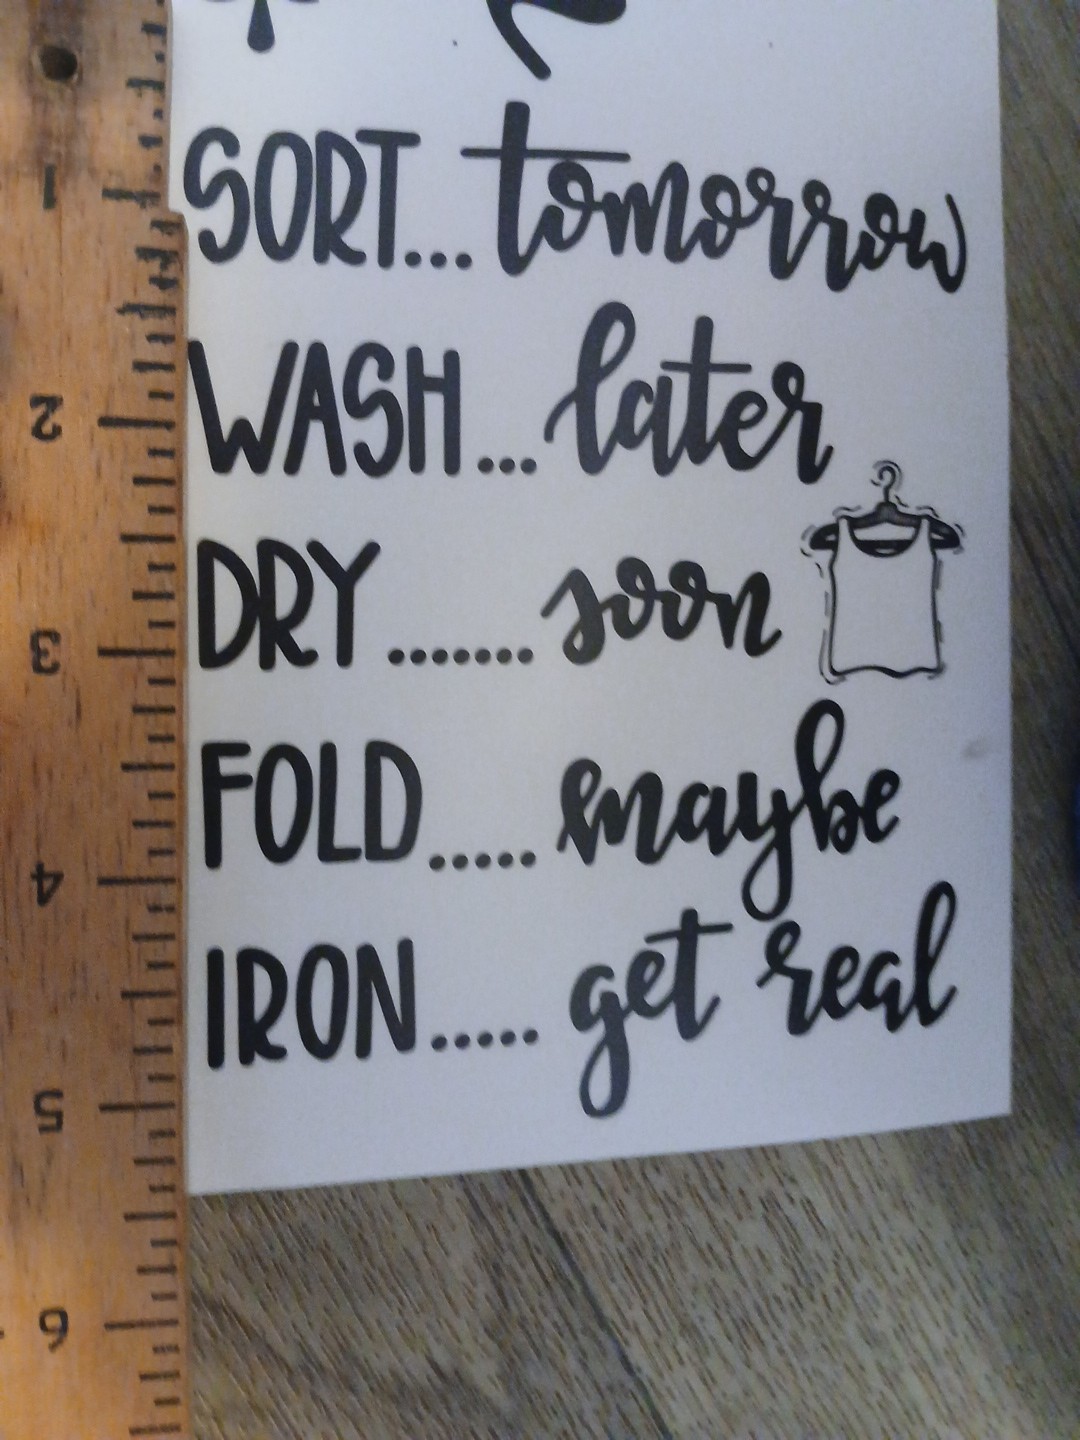 SORT... tomorrow
WASH... later
DRY....... soon
FOLD..... maybe
IRON..... get real
1
2
3
4
5
6